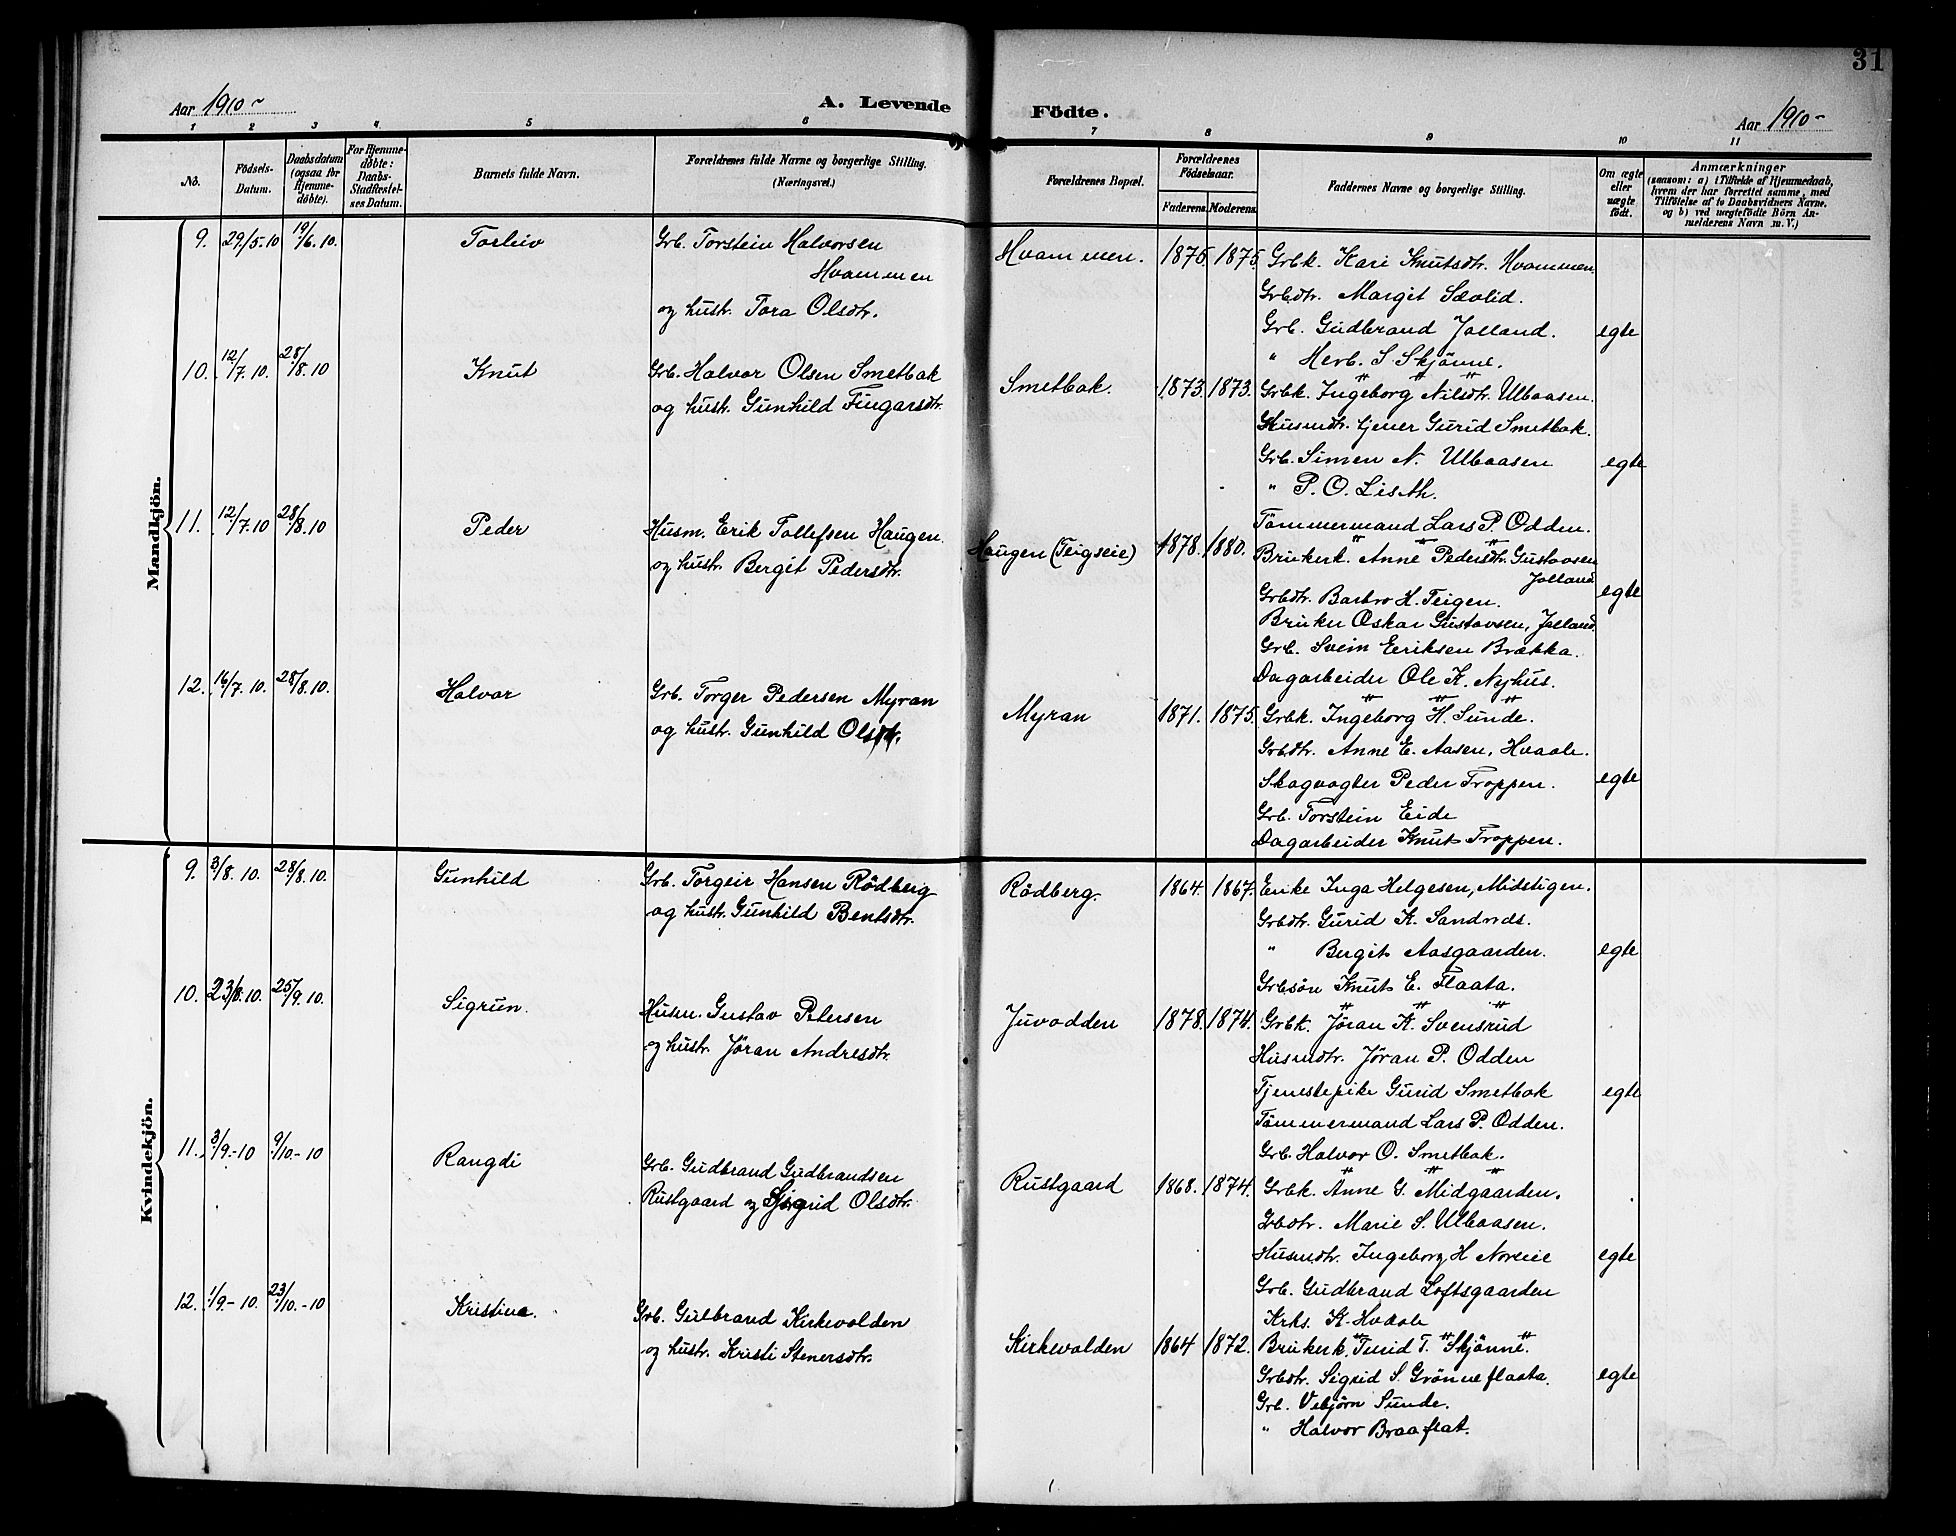 31
Aar 1910-
A. Levende
Födte.
Aar 1910-
1 2 3 4 5 6 7 8 9 10 11
No.
Födsels-Datum.
Daabsdatum (ogsaa for Hjemmedöbte).
For Hjemmedöbte: Daabs-Stadfæstelses Datum.
Barnets fulde Navn.
Forældrenes fulde Navne og borgerlige Stilling. (Næringsvei.)
Forældrenes Bopæl.
Forældrenes Födselsaar.
Faderens. Moderens.
Faddernes Navne og borgerlige Stilling.
Om ægte eller uægte födt.
Anmærkninger
(saasom: a) i Tilfælde af Hjemmedaab, hvem der har forrettet samme, med Tilföielse af to Daabsvidners Navne, og b) ved uægtefödte Börn Anmelderens Navn m. V.)
Mandkjön.
9. 29/5.10 19/6.10. Torleiv
Grb. Torstein Halvorsen
Hvammen
og hustr. Tora Olsdtr.
Hvammen. 1875. 1875.
Grbk. Kari Knutsdtr. Hvammen.
Grbdtr. Margit Sævlid.
Grb. Gudbrand Jolland. egte
" Herb. S. Skjönne.
10. 12/7.10. 28/8.10 Knut
Grb. Halvor Olsen Smetbak
og hustr. Gunhild Fingarsdtr.
Smetbak. 1873. 1873.
Grbk. Ingeborg Nilsdtr. Ulbaasen.
Husmdtr. tjener Gurid Smetbak.
Grb. Simen N. Ulbaasen egte
" P. O. Liseth.
Tömmermand Lars P. Odden.
11. 12/7.10 28/8.10 Peder
Husm. Erik Tollefsen Haugen.
og hustr. Bergit Pedersdtr.
Haugen (Teigseie) 1878. 1880.
Brukerk. Anne Pedersdtr. Gustavsen
Jolland
Grbdtr. Barbro H. Teigen. egte
Bruker Oskar Gustavsen, Jolland.
Grb. Svein Eeriksen Brækka.
Dagarbeider Ole K. Nyhus.
12. 16/7.10. 28/8.10. Halvor
Grb. Torger Pedersen Myran
og hustr. Gunhild Olsdtr.
Myran 1871. 1875.
Grbk. Ingeborg H. Sunde.
Grbdtr. Anne E. Aasen, Hvaale.
Skogvogter Peder Troppen. egte
Grb. Torstein Eide
Dagarbeider Knut Troppen.
Kvindekjön.
9. 3/8.10. 28/8.10. Gunhild
Grb. Torgeir Hansen Rödberg
og hustr. Gunhild Bentsdtr.
Rödberg. 1864. 1867.
Enke Inga Helgesen, Midstigen.
Grbdtr. Gurid K. Sandnes.
" Bergit Aasgaarden. egte
Grbsön Knut E. Flaata.
10. 23/8.10. 25/9.10. Sigrun.
Husm. Gustav Petersen
og hustr. Jøran Andresdtr.
Juvodden 1878. 1874.
Grbk. Jøran K. Svensrud
Husmdtr. Jøran P. Odden
Tjenestepike Gurid Smetbak egte
Tömmermand Lars P. Odden.
Grb. Halvor O. Smetbak.
11. 3/9.-10 9/10.-10 Rangdi
Grb. Gudbrand Gudbrandsen
Rustgaard og Sigrid Olsdtr.
Rustgaard 1868. 1874.
Grbk. Anne G. Midgaarden.
Grbdtr. Marie S. Ulbaasen.
Husmdtr. Ingeborg H Noreie egte
Grb. Gudbrand Loftsgaarden
Krks. K. Hvaale
12. 1/9.-10. 23/10.-10 Kristine.
Grb. Gulbrand Kirkevolden
og hustr. Kristi Stenersdtr.
Kirkevolden 1864 1872.
Brukerk. Turid T. Skjönne.
Grbdtr. Sigrid S. Grönneflaata. egte
Grb. Vebjörn Sunde.
" Halvor Braaflat.